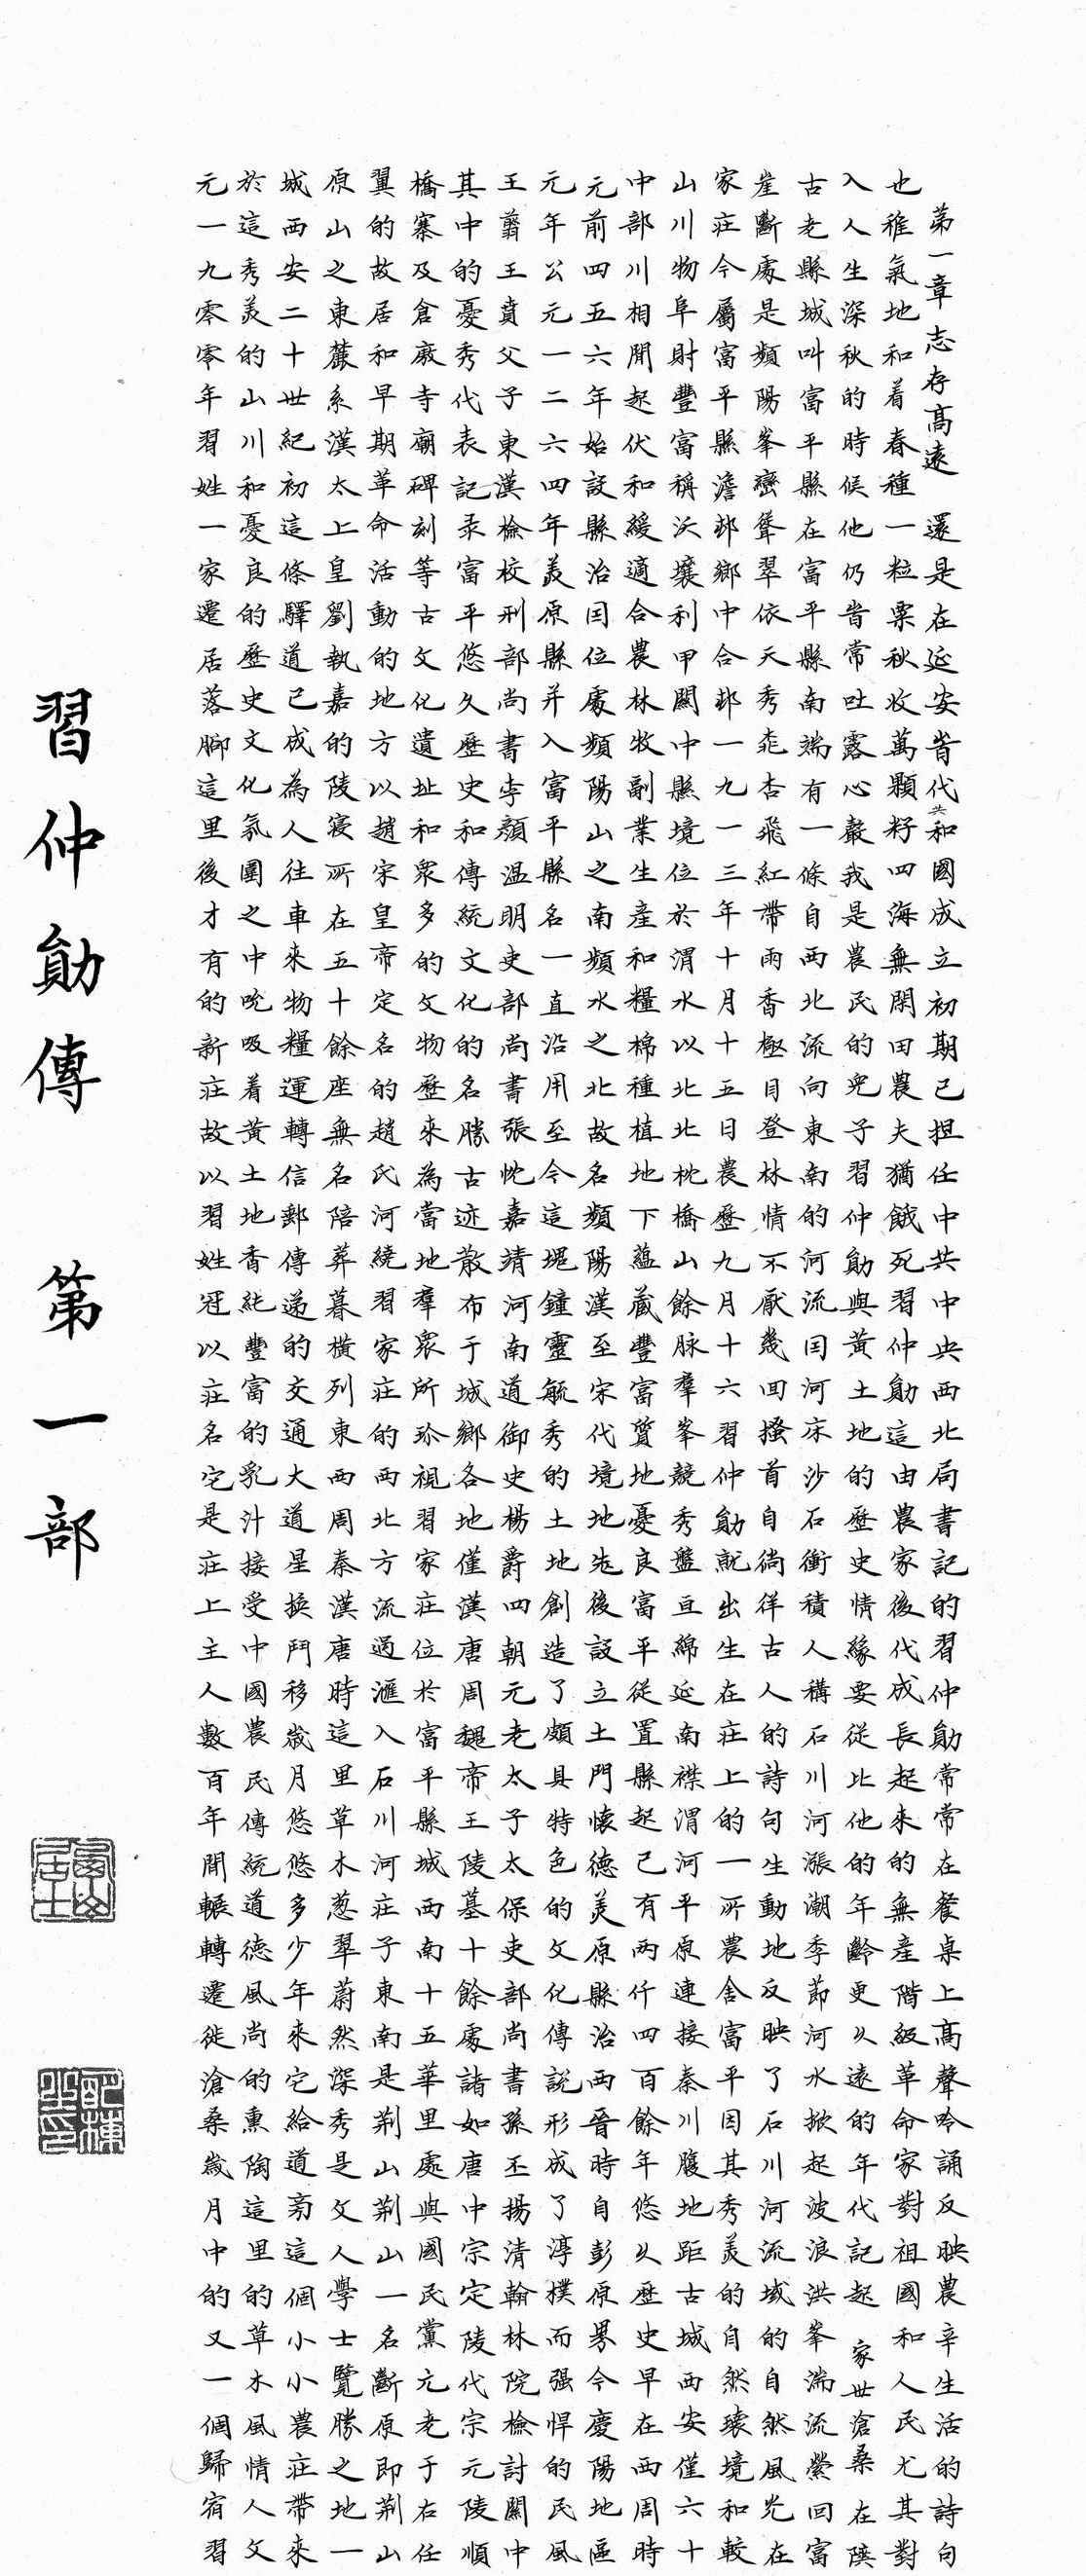 第一章志存高遠 還是在延安旹代共和國成立初期已担任中共中央西北局書記的習仲勛常常在餐桌上高聲吟誦反映農辛生活的詩句
也稚氣地和着春種一粒粟秋收萬顆籽四海無閑田農夫猶餓死習仲勛這由農家後代成長起來的無產階級革命家對祖國和人民尤其對
入人生深秋的時候他仍旹常吐露心聲我是農民的兒子習仲勛與黃土地的歷史情緣要從比他的年齡更久遠的年代記起 家世滄桑 在陝
古老縣城叫富平縣在富平縣南端有一條自西北流向東南的河流因河床沙石衝積人稱石川河漲潮季節河水掀起波浪洪峯湍流縈回富
崖斷處是頻陽峯巒聳翠依天秀桃杏飛紅帶雨香極目登林情不厭幾回搔首自徜徉古人的詩句生動地反映了石川河流域的自然風光在
家莊今屬富平縣澹邨鄉中合邨一九一三年十月十五日農歷九月十六習仲勛就出生在莊上的一所農舍富平因其秀美的自然環境和較
山川物阜財豐富稱沃壤利甲關中縣境位於渭水以北北枕橋山餘脉羣峯競秀盤亘綿延南襟渭河平原連接秦川腹地距古城西安僅六十
中部川相間起伏和緩適合農林牧副業生產和糧棉種植地下蘊藏豐富質地憂良富平從置縣起已有兩仟四百餘年悠久歷史早在西周時
元前四五六年始設縣治因位處頻陽山之南頻水之北故名頻陽漢至宋代境地先後設立土門懷德美原縣治西晉時自彭原界今慶陽地區
元年公元一二六四年美原縣并入富平縣名一直沿用至今這塊鐘靈毓秀的土地創造了頗具特色的文化傳說形成了淳樸而强悍的民風
王翦王賁父子東漢檢校刑部尚書李顏温明吏部尚書張忱嘉靖河南道御史楊爵四朝元老太子太保吏部尚書孫丕揚清翰林院檢討關中
其中的憂秀代表記录富平悠久歷史和傳統文化的名勝古迹散布于城鄉各地僅漢唐周魏帝王陵墓十餘處諸如唐中宗定陵代宗元陵順
橋寨及倉廒寺廟碑刻等古文化遺址和眾多的文物歷來為當地羣眾所珍視習家莊位於富平縣城西南十五華里處與國民黨元老于右任
翼的故居和早期革命活動的地方以趙宋皇帝定名的趙氏河繞習家莊的西北方流過滙入石川河莊子東南是荆山荆山一名斷原即荆山
原山之東麓系漢太上皇劉執嘉的陵寝所在五十餘座無名陪葬暮橫列東西周秦漢唐時這里草木葱翠蔚然深秀是文人學士覽勝之地一
城西安二十世紀初這條驛道已成為人往車來物糧運轉信郵傳递的交通大道星换鬥移歲月悠悠多少年來它給道旁這個小小農莊帶來
於這秀美的山川和憂良的歷史文化氛圍之中吮吸着黃土地香純豐富的乳汁接受中國農民傳統道德風尚的熏陶這里的草木風情人文
元一九零零年習姓一家遷居落腳這里後才有的新莊故以習姓冠以莊名它是莊上主人數百年間輾轉遷徙滄桑歲月中的又一個歸宿習
習仲勛傳 第一部